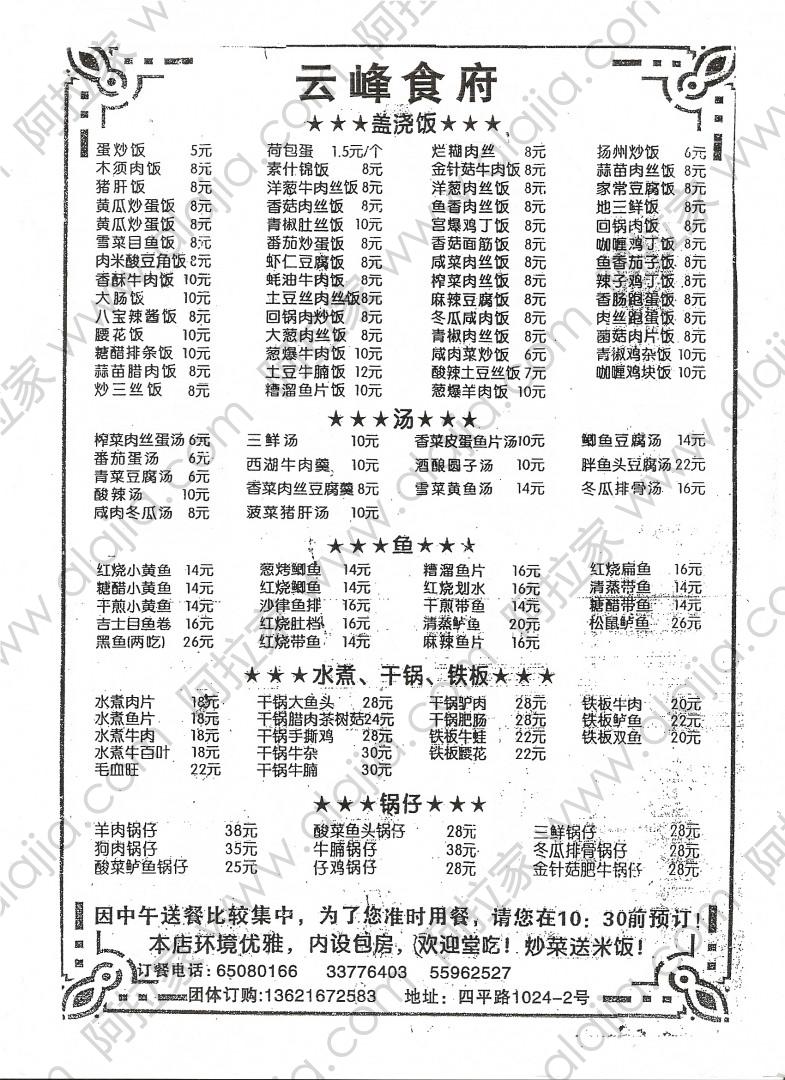 云峰食府
★★★盖浇饭★★★
蛋炒饭 5元 荷包蛋 1.5元/个 烂糊肉丝 8元 扬州炒饭 6元
木须肉饭 8元 素什锦饭 8元 金针菇牛肉饭 8元 蒜苗肉丝饭 8元
猪肝饭 8元 洋葱牛肉丝饭 8元 洋葱肉丝饭 8元 家常豆腐饭 8元
黄瓜炒蛋饭 8元 香菇肉丝饭 8元 鱼香肉丝饭 8元 地三鲜饭 8元
黄瓜炒蛋饭 8元 青椒肚丝饭 10元 宫爆鸡丁饭 8元 回锅肉饭 8元
雪菜目鱼饭 8元 番茄炒蛋饭 8元 香菇面筋饭 8元 咖喱鸡丁饭 8元
肉米酸豆角饭 8元 虾仁豆腐饭 8元 咸菜肉丝饭 8元 鱼香茄子饭 8元
香酥牛肉饭 10元 蚝油牛肉饭 8元 榨菜肉丝饭 8元 辣子鸡丁饭 8元
大肠饭 10元 土豆丝肉丝饭 8元 麻辣豆腐饭 8元 香肠跑蛋饭 8元
八宝辣酱饭 8元 回锅肉炒饭 8元 冬瓜咸肉饭 8元 肉丝跑蛋饭 8元
腰花饭 10元 大葱肉丝饭 8元 青椒肉丝饭 8元 菌菇肉片饭 8元
糖醋排条饭 10元 葱爆牛肉饭 10元 咸肉菜炒饭 6元 青椒鸡杂饭 10元
蒜苗腊肉饭 8元 土豆牛腩饭 12元 酸辣土豆丝饭 7元 咖喱鸡块饭 10元
炒三丝饭 8元 糟溜鱼片饭 10元 葱爆羊肉饭 10元
★★★汤★★★
榨菜肉丝蛋汤 6元 三鲜汤 10元 香菜皮蛋鱼片汤 10元 鲫鱼豆腐汤 14元
番茄蛋汤 6元 西湖牛肉羹 10元 酒酿圆子汤 10元 胖鱼头豆腐汤 22元
青菜豆腐汤 6元 香菜肉丝豆腐羹 8元 雪菜黄鱼汤 14元 冬瓜排骨汤 16元
酸辣汤 10元 菠菜猪肝汤 10元
咸肉冬瓜汤 8元
★★★鱼★★★
红烧小黄鱼 14元 葱烤鲫鱼 14元 糟溜鱼片 16元 红烧扁鱼 16元
糖醋小黄鱼 14元 红烧鲫鱼 14元 红烧划水 16元 清蒸带鱼 14元
干煎小黄鱼 14元 沙律鱼排 16元 干煎带鱼 14元 糖醋带鱼 14元
吉士目鱼卷 16元 红烧肚档 16元 清蒸鲈鱼 20元 松鼠鲈鱼 26元
黑鱼(两吃) 26元 红烧带鱼 14元 麻辣鱼片 16元
★★★水煮、干锅、铁板★★★
水煮肉片 18元 干锅大鱼头 28元 干锅驴肉 28元 铁板牛肉 20元
水煮鱼片 18元 干锅腊肉茶树菇 24元 干锅肥肠 28元 铁板鲈鱼 22元
水煮牛肉 18元 干锅手撕鸡 28元 铁板牛蛙 22元 铁板双鱼 20元
水煮牛百叶 18元 干锅牛杂 30元 铁板腰花 22元
毛血旺 22元 干锅牛腩 30元
★★★锅仔★★★
羊肉锅仔 38元 酸菜鱼头锅仔 28元 三鲜锅仔 28元
狗肉锅仔 35元 牛腩锅仔 38元 冬瓜排骨锅仔 28元
酸菜鲈鱼锅仔 25元 仔鸡锅仔 28元 金针菇肥牛锅仔 28元
因中午送餐比较集中，为了您准时用餐，请您在10：30前预订！
本店环境优雅，内设包房，欢迎堂吃！炒菜送米饭！
订餐电话：65080166 33776403 55962527
团体订购:13621672583 地址：四平路1024-2号
阿拉家 www.alajia.com